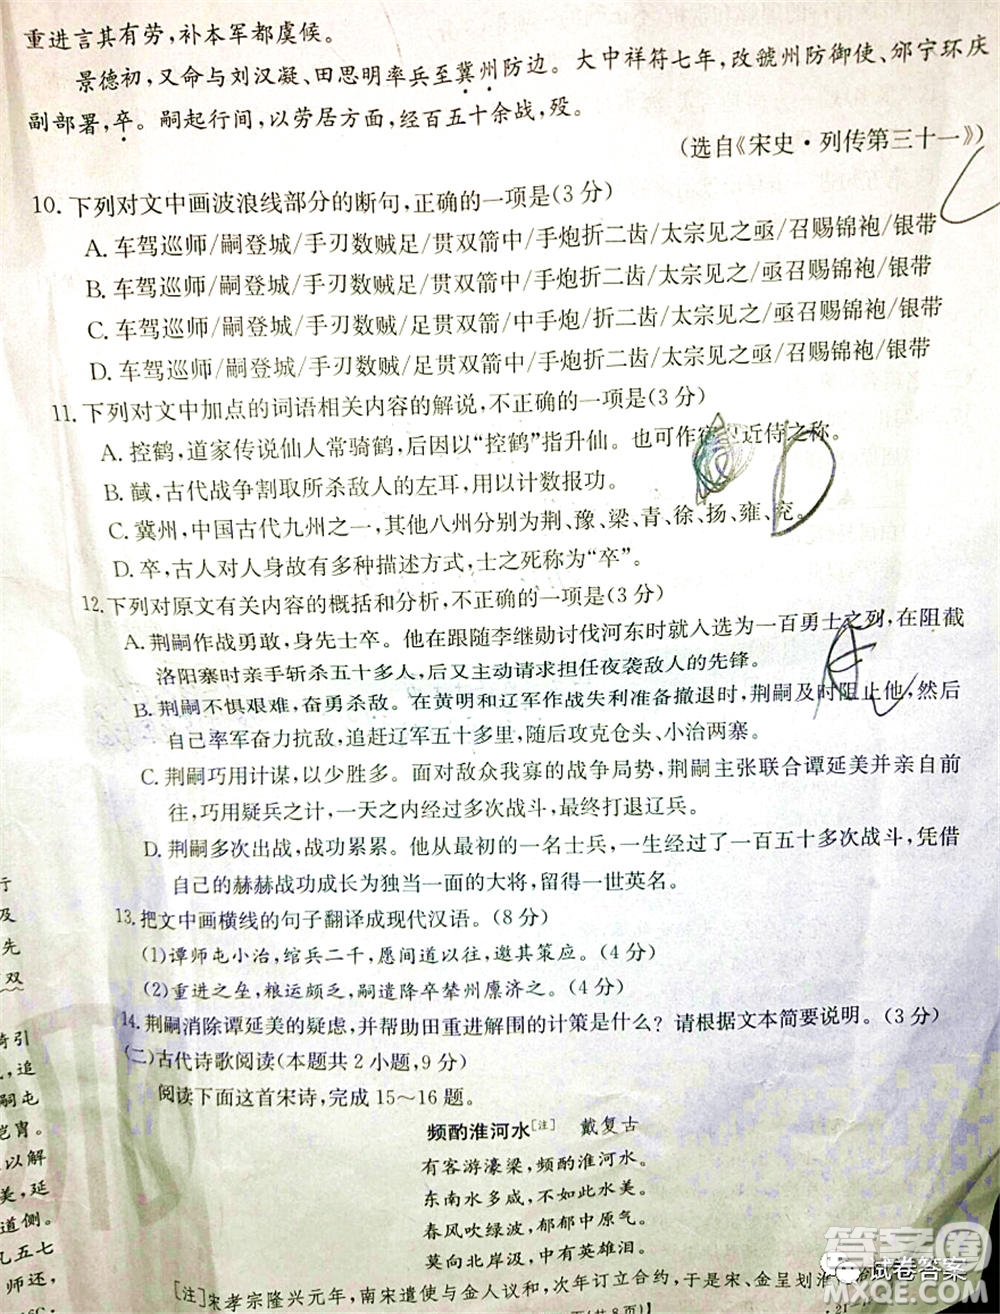 重进言其有劳，补本军都虞候。
景德初，又命与刘汉凝、田思明率兵至冀州防边。大中祥符七年，改虢州防御使、邠宁环庆
副部署，卒。嗣起行间，以劳居方面，经百五十余战，殁。
（选自《宋史·列传第三十一》）
10. 下列对文中画波浪线部分的断句，正确的一项是（3分）
A. 车驾巡师/嗣登城/手刃数贼足/贯双箭中/手炮折二齿/太宗见之亟/召赐锦袍/银带
B. 车驾巡师/嗣登城/手刃数贼足/贯双箭中/手炮折二齿/太宗见之/亟召赐锦袍/银带
C. 车驾巡师/嗣登城/手刃数贼/足贯双箭/中手炮/折二齿/太宗见之/亟召赐锦袍/银带
D. 车驾巡师/嗣登城/手刃数贼/足贯双箭/中手炮折二齿/太宗见之亟/召赐锦袍/银带
11. 下列对文中加点的词语相关内容的解说，不正确的一项是（3分）
A. 控鹤，道家传说仙人常骑鹤，后因以“控鹤”指升仙。也可作宿 近侍之称。
B. 馘，古代战争割取所杀敌人的左耳，用以计数报功。
C. 冀州，中国古代九州之一，其他八州分别为荆、豫、梁、青、徐、扬、雍、兖。
D. 卒，古人对人身故有多种描述方式，士之死称为“卒”。
12. 下列对原文有关内容的概括和分析，不正确的一项是（3分）
A. 荆嗣作战勇敢，身先士卒。他在跟随李继勋讨伐河东时就入选为一百勇士之列，在阻截
洛阳寨时亲手斩杀五十多人，后又主动请求担任夜袭敌人的先锋。
B. 荆嗣不惧艰难，奋勇杀敌。在黄明和辽军作战失利准备撤退时，荆嗣及时阻止他，然后
自己率军奋力抗敌，追赶辽军五十多里，随后攻克仓头、小治两寨。
C. 荆嗣巧用计谋，以少胜多。面对敌众我寡的战争局势，荆嗣主张联合谭延美并亲自前
往，巧用疑兵之计，一天之内经过多次战斗，最终击败辽兵。
D. 荆嗣多次出战，战功累累。他从最初的一名士兵，参与了一百五十多次战斗，凭借
自己的赫赫战功成长为独当一面的大将，留得一世英名。
13. 把文中画横线的句子翻译成现代汉语。（8分）
（1）谭师屯小治，绾兵二千，愿间道以往，邀其策应。（4分）
（2）重进之垒，粮运颇乏，嗣遣降卒辇州廪济之。（4分）
14. 荆嗣消除谭延美的疑虑，并帮助田重进解围的计策是什么？请根据文本简要说明。（3分）
（二）古代诗歌阅读（本题共2小题，9分）
阅读下面这首宋诗，完成15～16题。
频酌淮河水[注] 戴复古
有客游濠梁，频酌淮河水。
东南水多咸，不如此水美。
春风吹绿波，郁郁中原气。
莫向北岸汲，中有英雄泪。
[注]宋孝宗隆兴元年，南宋遣使与金人议和，次年订立合约，于是宋、金呈划淮
行
及
先
双
骑引
，追
嗣屯
铠胄。
以解
美，延
道侧。
儿五七
师还，
答案圈
MXQE.COM
试卷答案